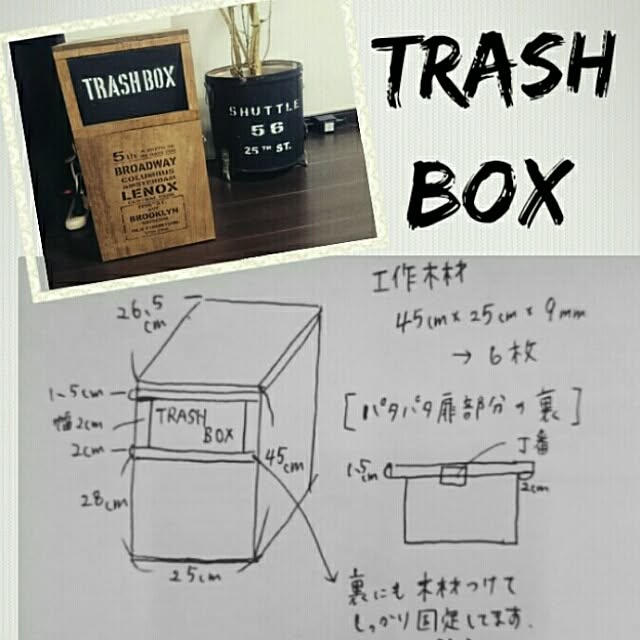 TRASH BOX
SHUTTLE
56
25TH ST.
BROADWAY
COLUMBUS
AMSTERDAM
LENOX
BROOKLYN
TRASH
BOX
工作木材
45cm×25cm×9mm
→6枚
26.5
cm
1.5cm
幅2cm
TRASH
BOX
2cm
45cm
28cm
25cm
[パタパタ扉部分の裏]
丁番
1.5cm
2cm
裏にも木材つけて
しっかり固定してます。